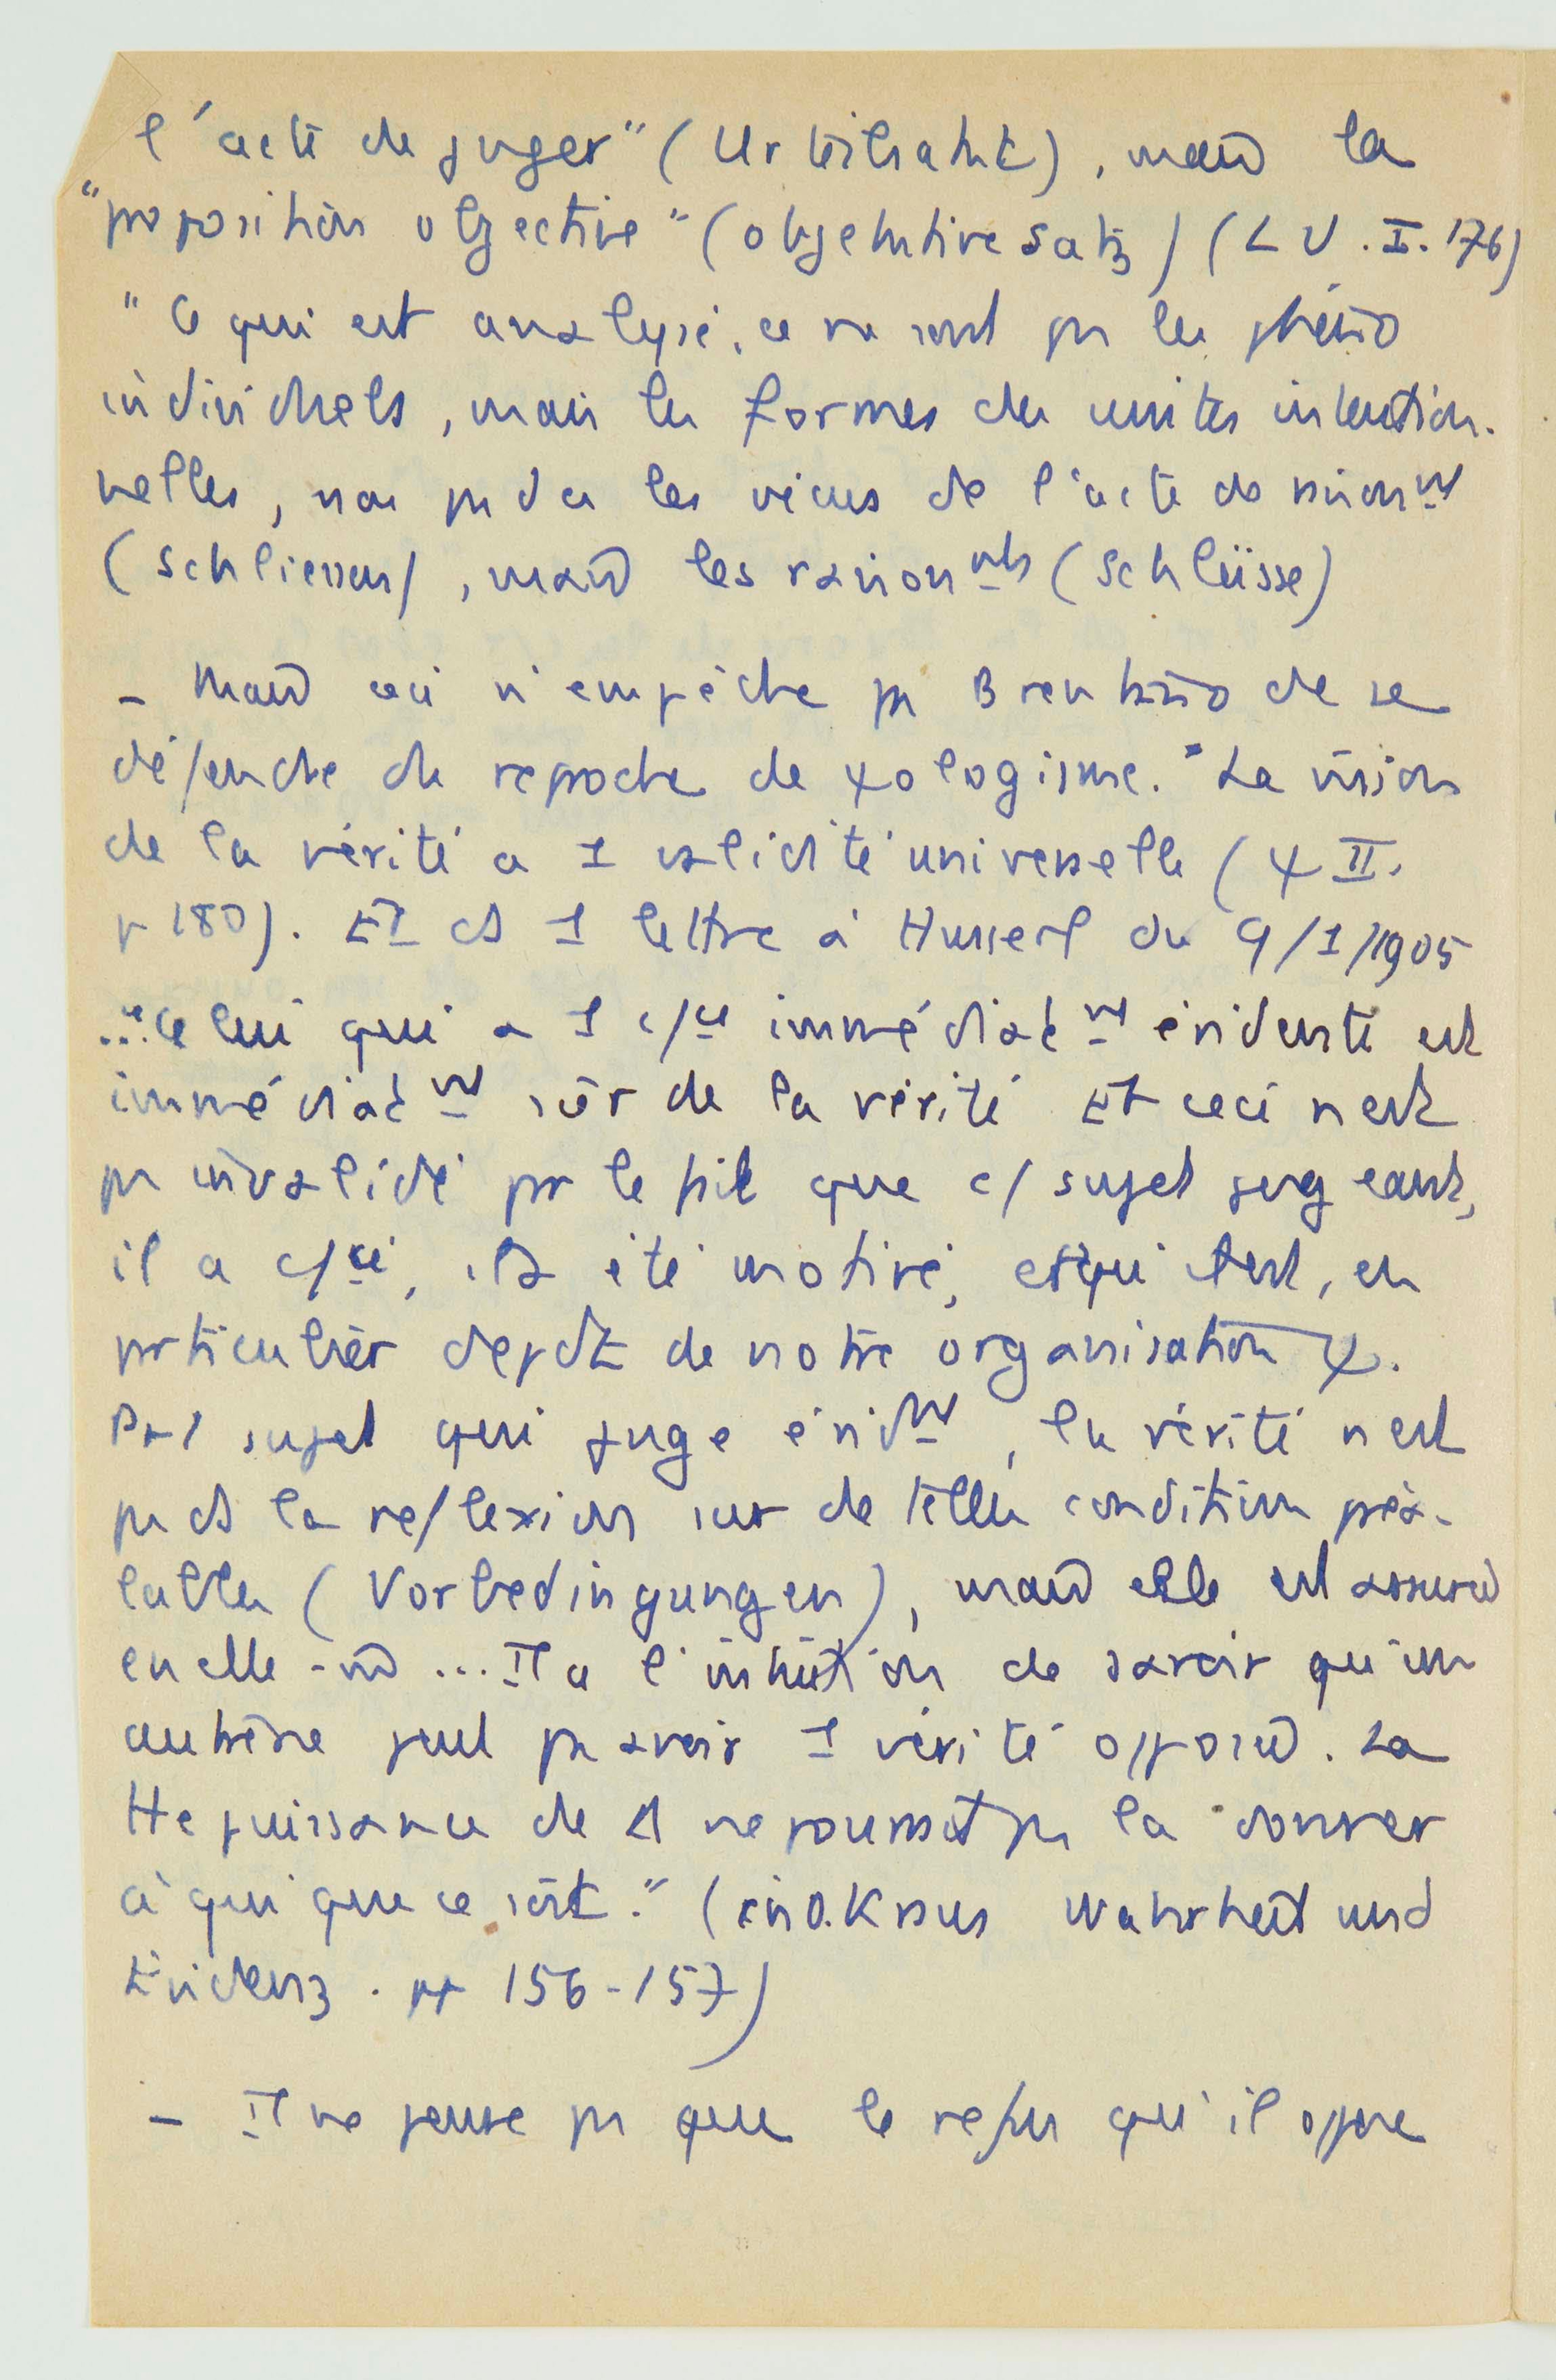 l'acte de juger" (Urteilsakt), mais la
"proposition objective" (objektive Satz) (LU. I. 176)
"Ce qui est analysé, ce ne sont ps les phéno
individuels, mais les formes des unités intention-
nelles, non ps d les vécus de l'acte de raisonnt
(schliessen), mais les raisonnts (Schlüsse)
- Mais ceci n'empêche ps Brentano de se
défendre du reproche de ψologisme. "La vision
de la vérité a 1 validité universelle (ψ II.
p 180). Et ds 1 lettre à Husserl du 9/1/1905
..."celui qui a 1 c/ce immédiatnt évidente est
immédiatnt sûr de la vérité Et ceci n'est
ps invalidé pr le fait que c/ sujet jugeant,
il a c/cé, il a été motivé, et qu'il est, en
particulier dépdt de notre organisation ψ.
Pr 1 sujet qui juge évidnt, la vérité n'est
ps ds la réflexion sur de telles conditions préa-
lables (Vorbedingungen), mais elle est assurée
en elle-m ... Il a l'intuition de savoir qu'un
autre ne peut ps avoir 1 vérité opposée. La
tte puissance de Δ ne pourrait ps la donner
à qui que ce soit." (in O. Kraus Wahrheit und
Evidenz. pp 156-157)
- Il ne pense ps que le refus qu'il oppose